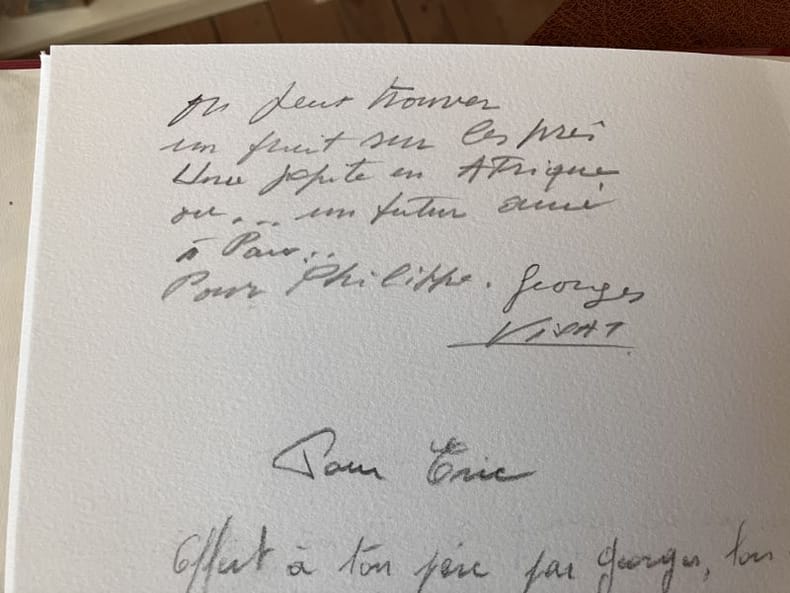 on peut trouver
un fruit sur les prés
Une pépite en AFrique
ou... un futur ami
à Pau...
Pour Philippe. Georges
VISAT
Pour Eric
Offert à ton père par Georges, ton